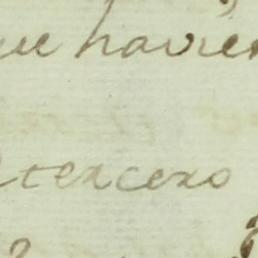 que havien
tercero